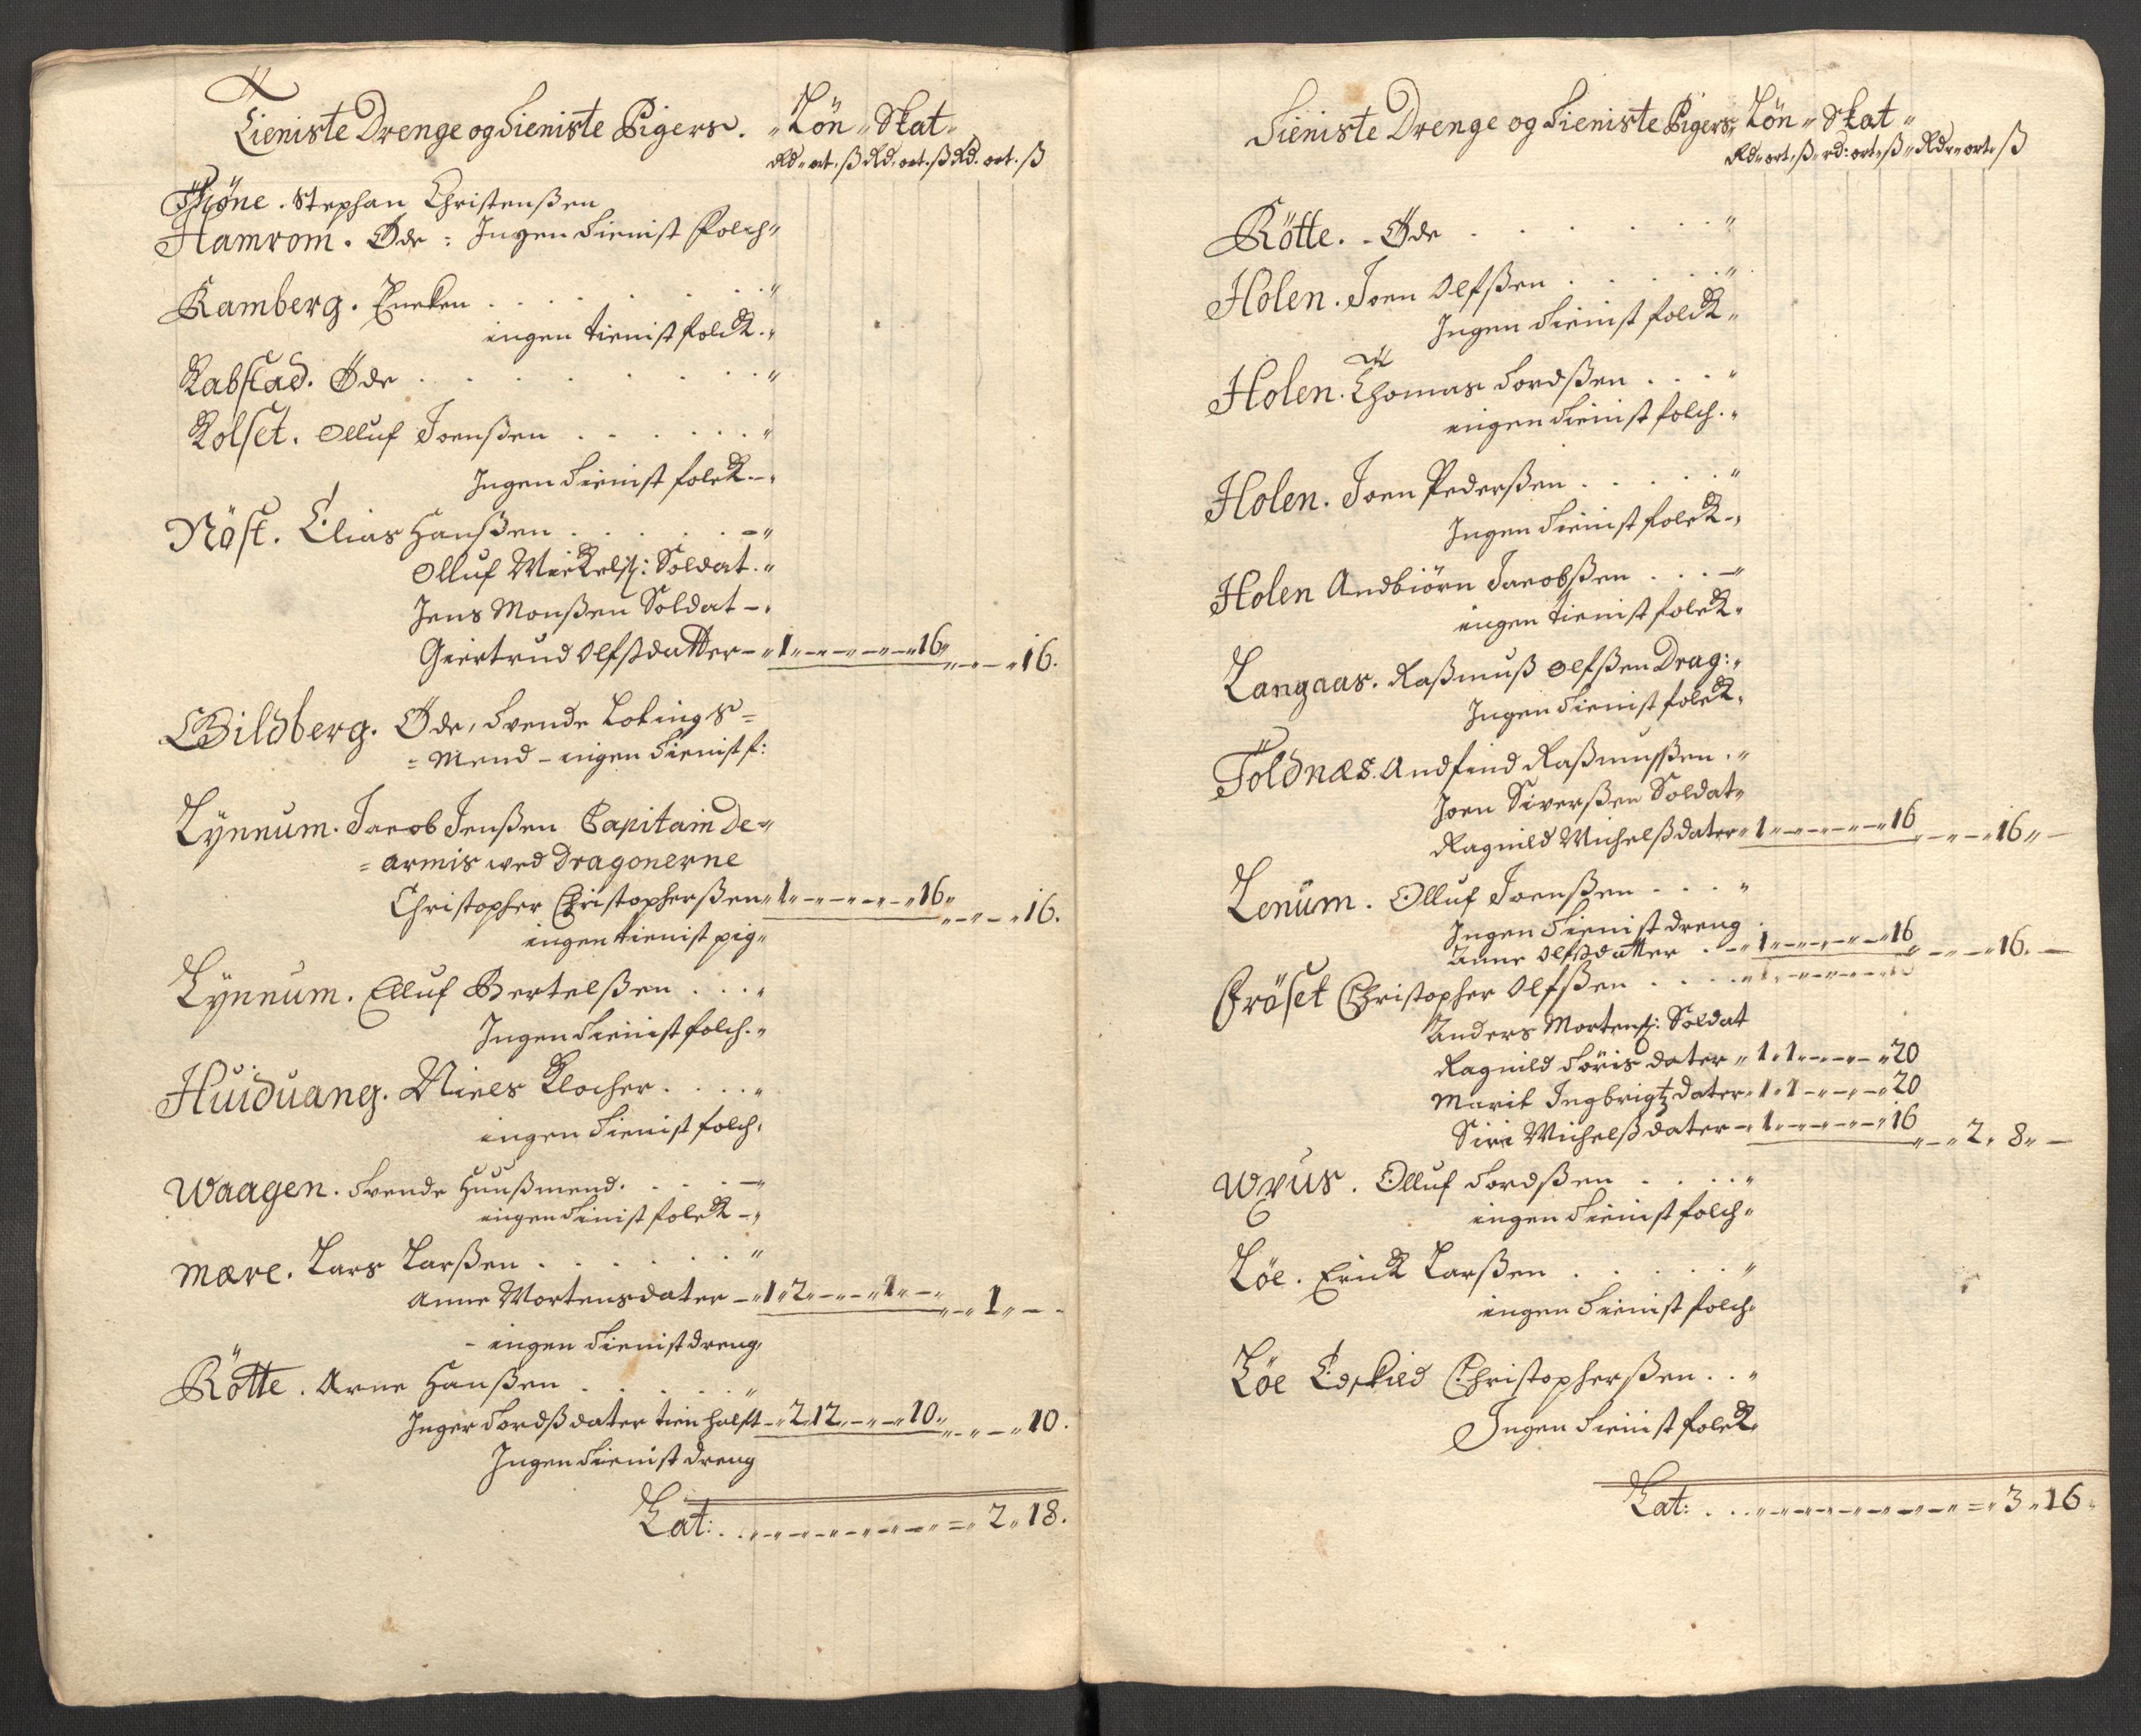 Tieniste Drenge og Tieniste Pigers. " Lön " Skat "
Rd " ort " ß Rd. ort. ß Rd. ort. ß
Thiöne. Stephan Christenßen
Hamrom. Öde: Ingen Tienist Folch "
Kamberg. Encken . . . . . . "
ingen tienist folck. "
Rabstad. Öde . . . . . . "
Kolset. Olluf Joenßen . . . . . . "
Ingen Tienist folck - "
Nöst. Elias Hanßen . . . . . - "
Olluf Mickelß: Soldat. "
Jens Monßen Soldat - "
Giertrud Olfßdatter - " 1 " - " - " - " 16 " " - " - " 16.
Wildberg. Öde, Svende Lotings =
= Mend - ingen Tienist f:
Lÿnnum. Jacob Jenßen Capitain de = "
= armis wed Dragonerne
Christopher Christopherßen " 1 " - " - " - " 16 " " - " - " 16.
ingen tienist pig "
Lÿnnum. Elluf Bertelßen . . . "
Ingen Tienist folch. "
Huiduang. Niels Klocher . . . . "
ingen Tienist folch.
Waagen. Svende Huußmend. . . . - "
ingen Tinist folck - "
Mære. Lars Larßen . . . . . . "
Anne Mortensdater - " 1 " 2 " - " - " 1 " - " " - " 1 " - -
- ingen Tienist dreng,
Rötte. Arne Hanßen . . . . . . "
Inger Tordßdater tien halft - " 2 " 12 " - " - " 10 " " - " - " 10.
Ingen Tienist dreng
Lat: . . " - " - " - " - " - " = " 2 " 18.
Tieniste Drenge og Tieniste Pigers " Lön " Skat "
Rd " ort " ß " rd: ort " ß " Rdr " ort " ß
Rötte. - Öde . . . . . . "
Holen. Joen Olfßen . . . . . "
Ingen Tienist folck "
Holen. Thomas Tordßen . . . "
ingen Tienist folch. "
Holen. Joen Pederßen . . . . . "
Ingen Tienist folck - "
Holen Andbiörn Jacobßen . . . - "
ingen tienist folck "
Langaas. Raßmuß Olfßen Drag: "
Ingen Tienist folck "
Toldnæs. Andfind Raßmusßen . "
Joen Siverßen Soldat "
Ragnild Michelßdater " 1 " - " - " - " 16 " - " - " 16 " -
Lenum. Olluf Joenßen . . . "
Ingen Tienist dreng .
Anne Olfßdatter . - " 1 " - " - " - " 16 " - " - " 16. -
Fröset Christopher Olfßen . . . .
Anders Mortenß: Soldat
Ragnild Töris dater " 1 " 1 " - " - " 20
Marit Ingbrigtz dater " 1 " 1 - " - " - " 20
Siri Michelßdater - " 1 " - " - " - " 16 " - " 2 " 8 " -
Wvus. Olluf Tordßen . . . . "
ingen Tienist folch "
Löe. Erick Larßen . . . . . . "
ingen Tienist folch "
Löe Eskild Christopherßen . . "
Ingen Tienist folck "
Lat: . . . " - " - " - " - " - " = " 3 " 16 "